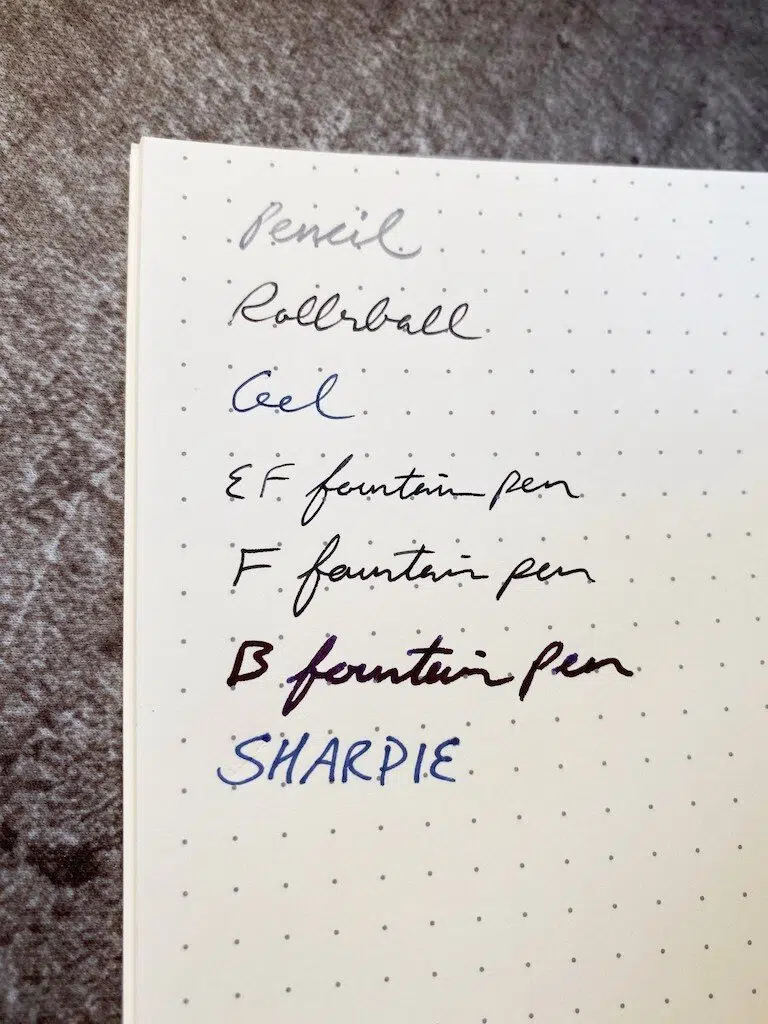 Pencil
Rollerball
Gel
EF fountain pen
F fountain pen
B fountain pen
SHARPIE